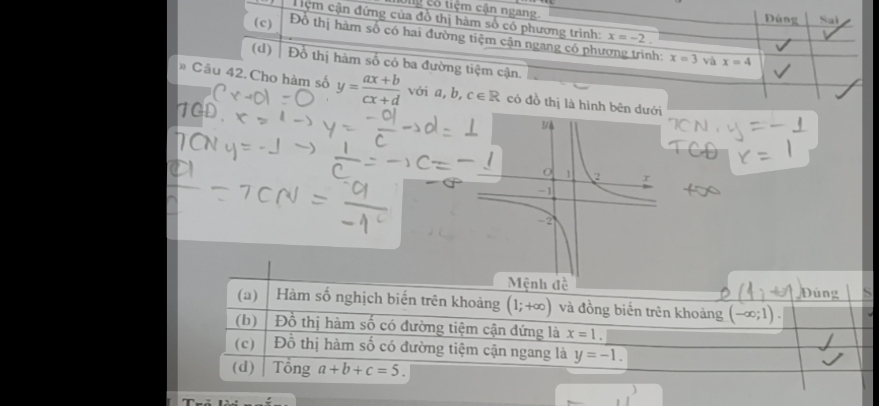 có tiệm cận ngang.
Tiệm cận đứng của đồ thị hàm số có phương trình: x = -2.
Đúng Sai
(c) Đồ thị hàm số có hai đường tiệm cận ngang có phương trình: x = 3 và x = 4
(d) Đồ thị hàm số có ba đường tiệm cận.
» Câu 42. Cho hàm số y = (ax + b)/(cx + d) với a, b, c ∈ ℝ có đồ thị là hình bên dưới
TCN. y = -1
TCĐ x = 1
TCĐ. x = 1 → y = -d/c → d = 1
TCN y = -1 →
= TCN = a/-1
+∞
O 1 2 x
-1
-2
Mệnh đề
Đúng
(a) Hàm số nghịch biến trên khoảng (1;+∞) và đồng biến trên khoảng (-∞;1).
(b) Đồ thị hàm số có đường tiệm cận đứng là x = 1.
(c) Đồ thị hàm số có đường tiệm cận ngang là y = -1.
(d) Tổng a + b + c = 5.